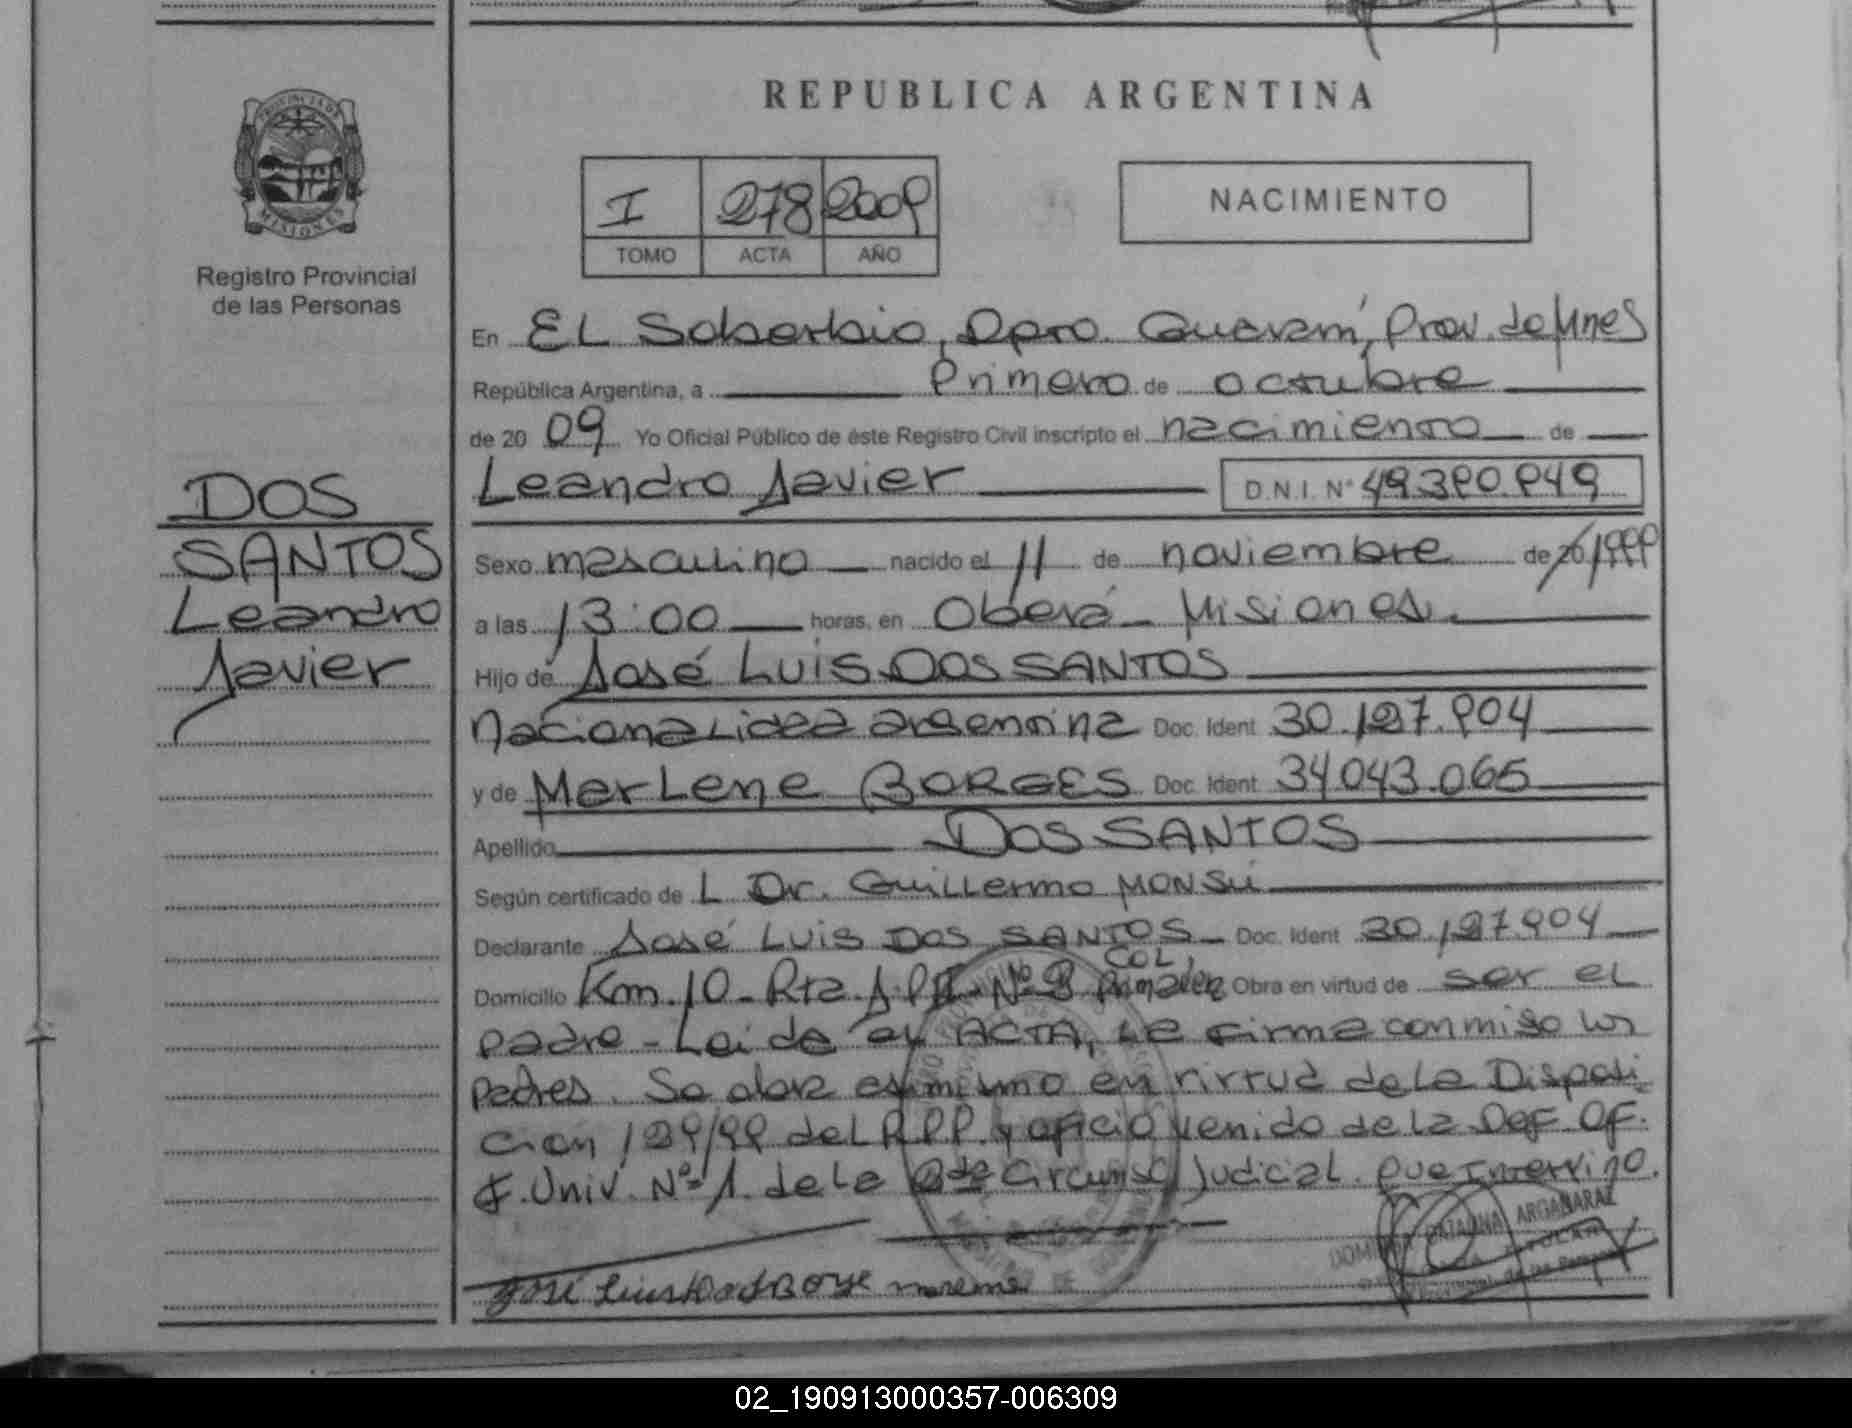 REPUBLICA ARGENTINA
PROVINCIA DE MISIONES
Registro Provincial
de las Personas
I 278 2009
TOMO ACTA AÑO
NACIMIENTO
En EL Soberbio, Dpto. Guaraní, Prov. de Mnes
República Argentina, a Primero de octubre
de 20 09 Yo Oficial Público de éste Registro Civil inscripto el nacimiento de
Leandro Javier D.N.I. Nº 49.390.949
DOS
SANTOS
Leandro
Javier
Sexo masculino nacido el 11 de noviembre de 20/1999
a las 13:00 horas, en Oberá - Misiones.
Hijo de José Luis DOS SANTOS
Nacionalidad argentina Doc. Ident 30.127.904
y de MarLene BORGES Doc. Ident 34.043.065
Apellido DOS SANTOS
Según certificado de L Dr. Guillermo MONSU
Declarante José Luis DOS SANTOS - Doc. Ident 30.127.904
Domicilio Km. 10 - Rta. Nº 8 COL. Obra en virtud de ser el
padre - Leida el ACTA, La firma conmigo los
padres. Se labra asimismo en virtud de la Disposi
cion 129/99 del R.P.P. y oficio venido de la Def. OF.
J. Univ. Nº 1 de la 2da Circunsc Judicial que Intervino.
ARGAÑARAZ
José Luis
02_190913000357-006309